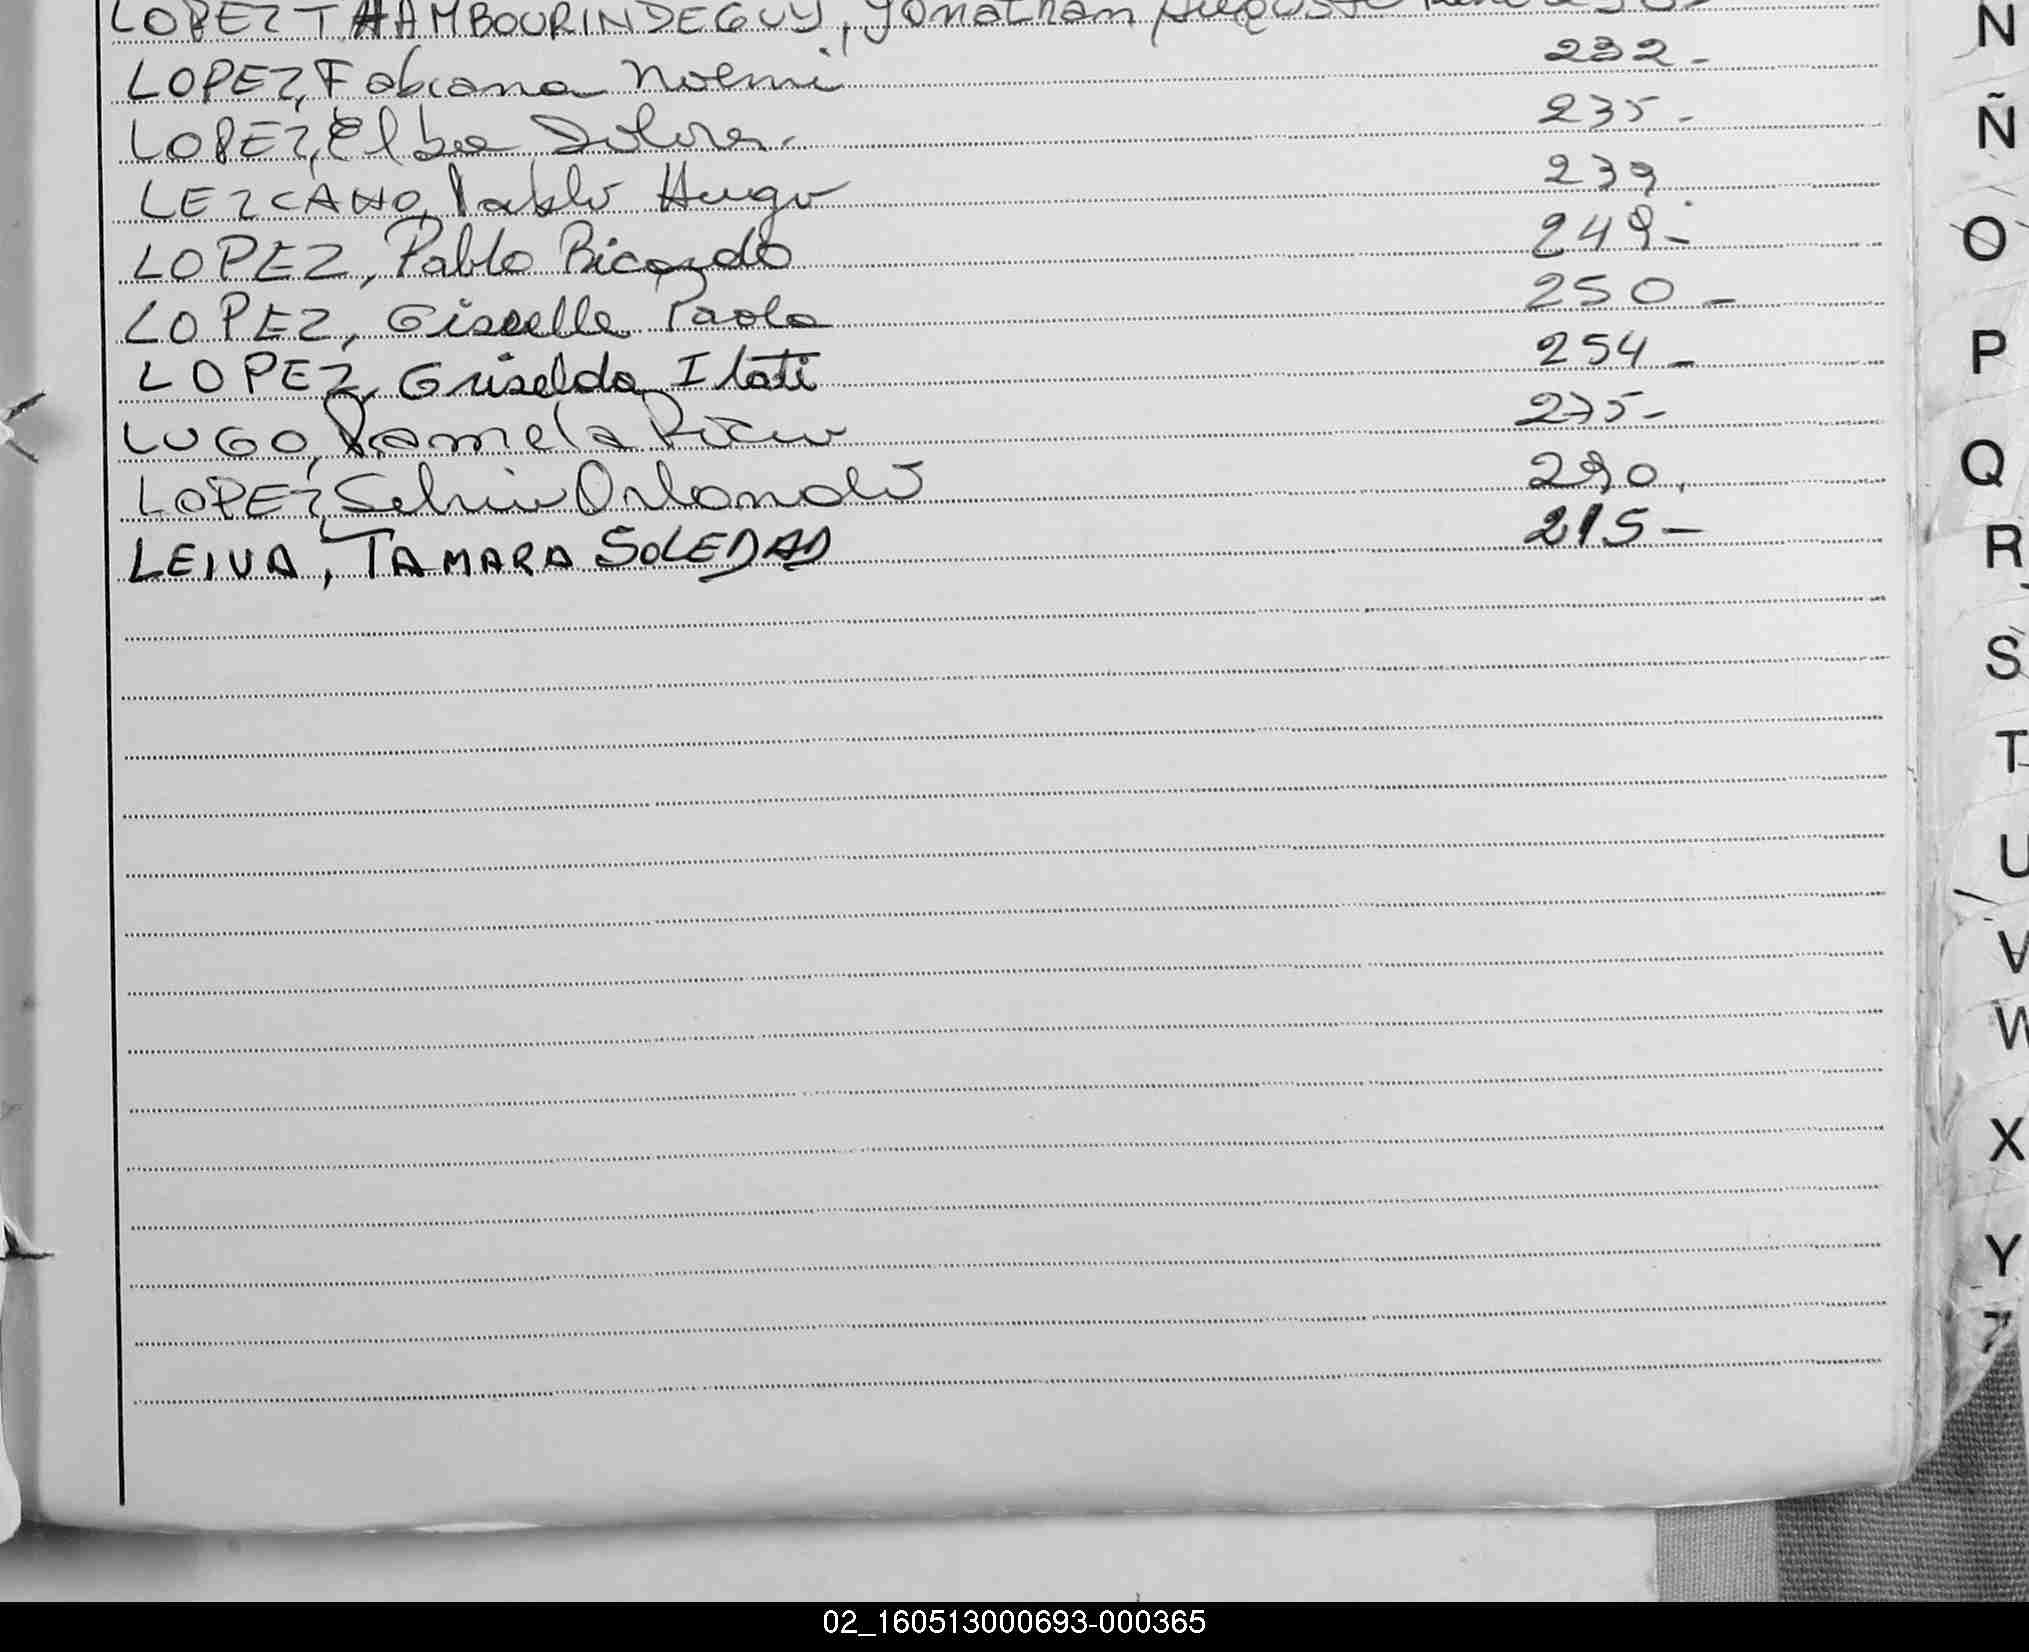 LOPEZ TAHAMBOURINDEGUY, Jonathan
LOPEZ, Fabiana Noemi 232-
LOPEZ, Elba Dolores. 235-
LEZCANO, Pablo Hugo 239.
LOPEZ, Pablo Ricardo 249-
LOPEZ, Giselle Paola 250-
LOPEZ, Griselda Itati 254-
LUGO, Pamela Rocio 275-
LOPEZ, Silvio Orlando 290.
LEIVA, TAMARA SOLEDAD 215-
N
Ñ
O
P
Q
R
S
T
U
V
W
X
Y
Z
02_160513000693-000365